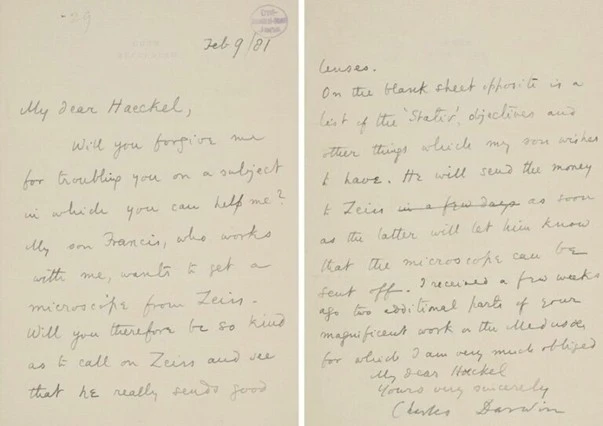 Feb 9/81
My dear Haeckel,
Will you forgive me
for troubling you on a subject
in which you can help me?
My son Francis, who works
with me, wants to get a
microscope from Zeiss.
Will you therefore be so kind
as to call on Zeiss and see
that he really sends good
lenses.
On the blank sheet opposite is a
list of the 'Stativ', objectives and
other things which my son wishes
to have. He will send the money
to Zeiss in a few days as soon
as the latter will let him know
that the microscope can be
sent off. I received a few weeks
ago two additional parts of your
magnificent work on the Medusae
for which I am very much obliged
My dear Haeckel
Yours very sincerely
Charles Darwin